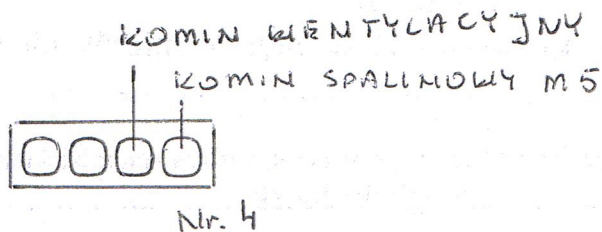 KOMIN WENTYLACYJNY
KOMIN SPALINOWY M5
Nr. 4